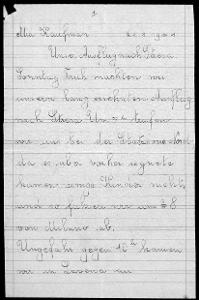 1
Mia Kaufman
Unser Ausflug nach Stresa
Sonntag früh machten wir
unsern lang ersehnten Ausflug
nach Stresa. Um 7 trafen
wir uns bei der
da es aber vorher regnete
kamen einige Kinder nicht,
und so fuhren wir um 8
von Milano ab.
Ungefähr gegen 12 kamen
wir in an